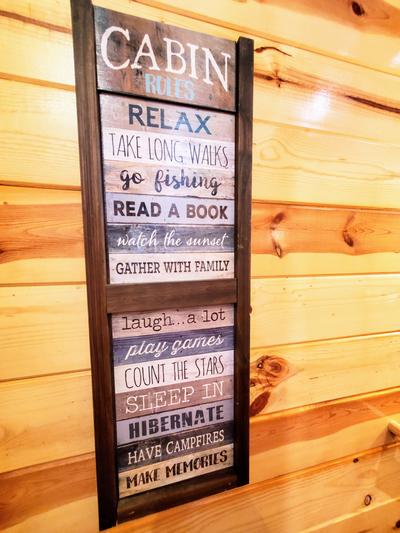 CABIN
RULES
RELAX
TAKE LONG WALKS
go fishing
READ A BOOK
watch the sunset
GATHER WITH FAMILY
laugh...a lot
play games
COUNT THE STARS
SLEEP IN
HIBERNATE
HAVE CAMPFIRES
MAKE MEMORIES